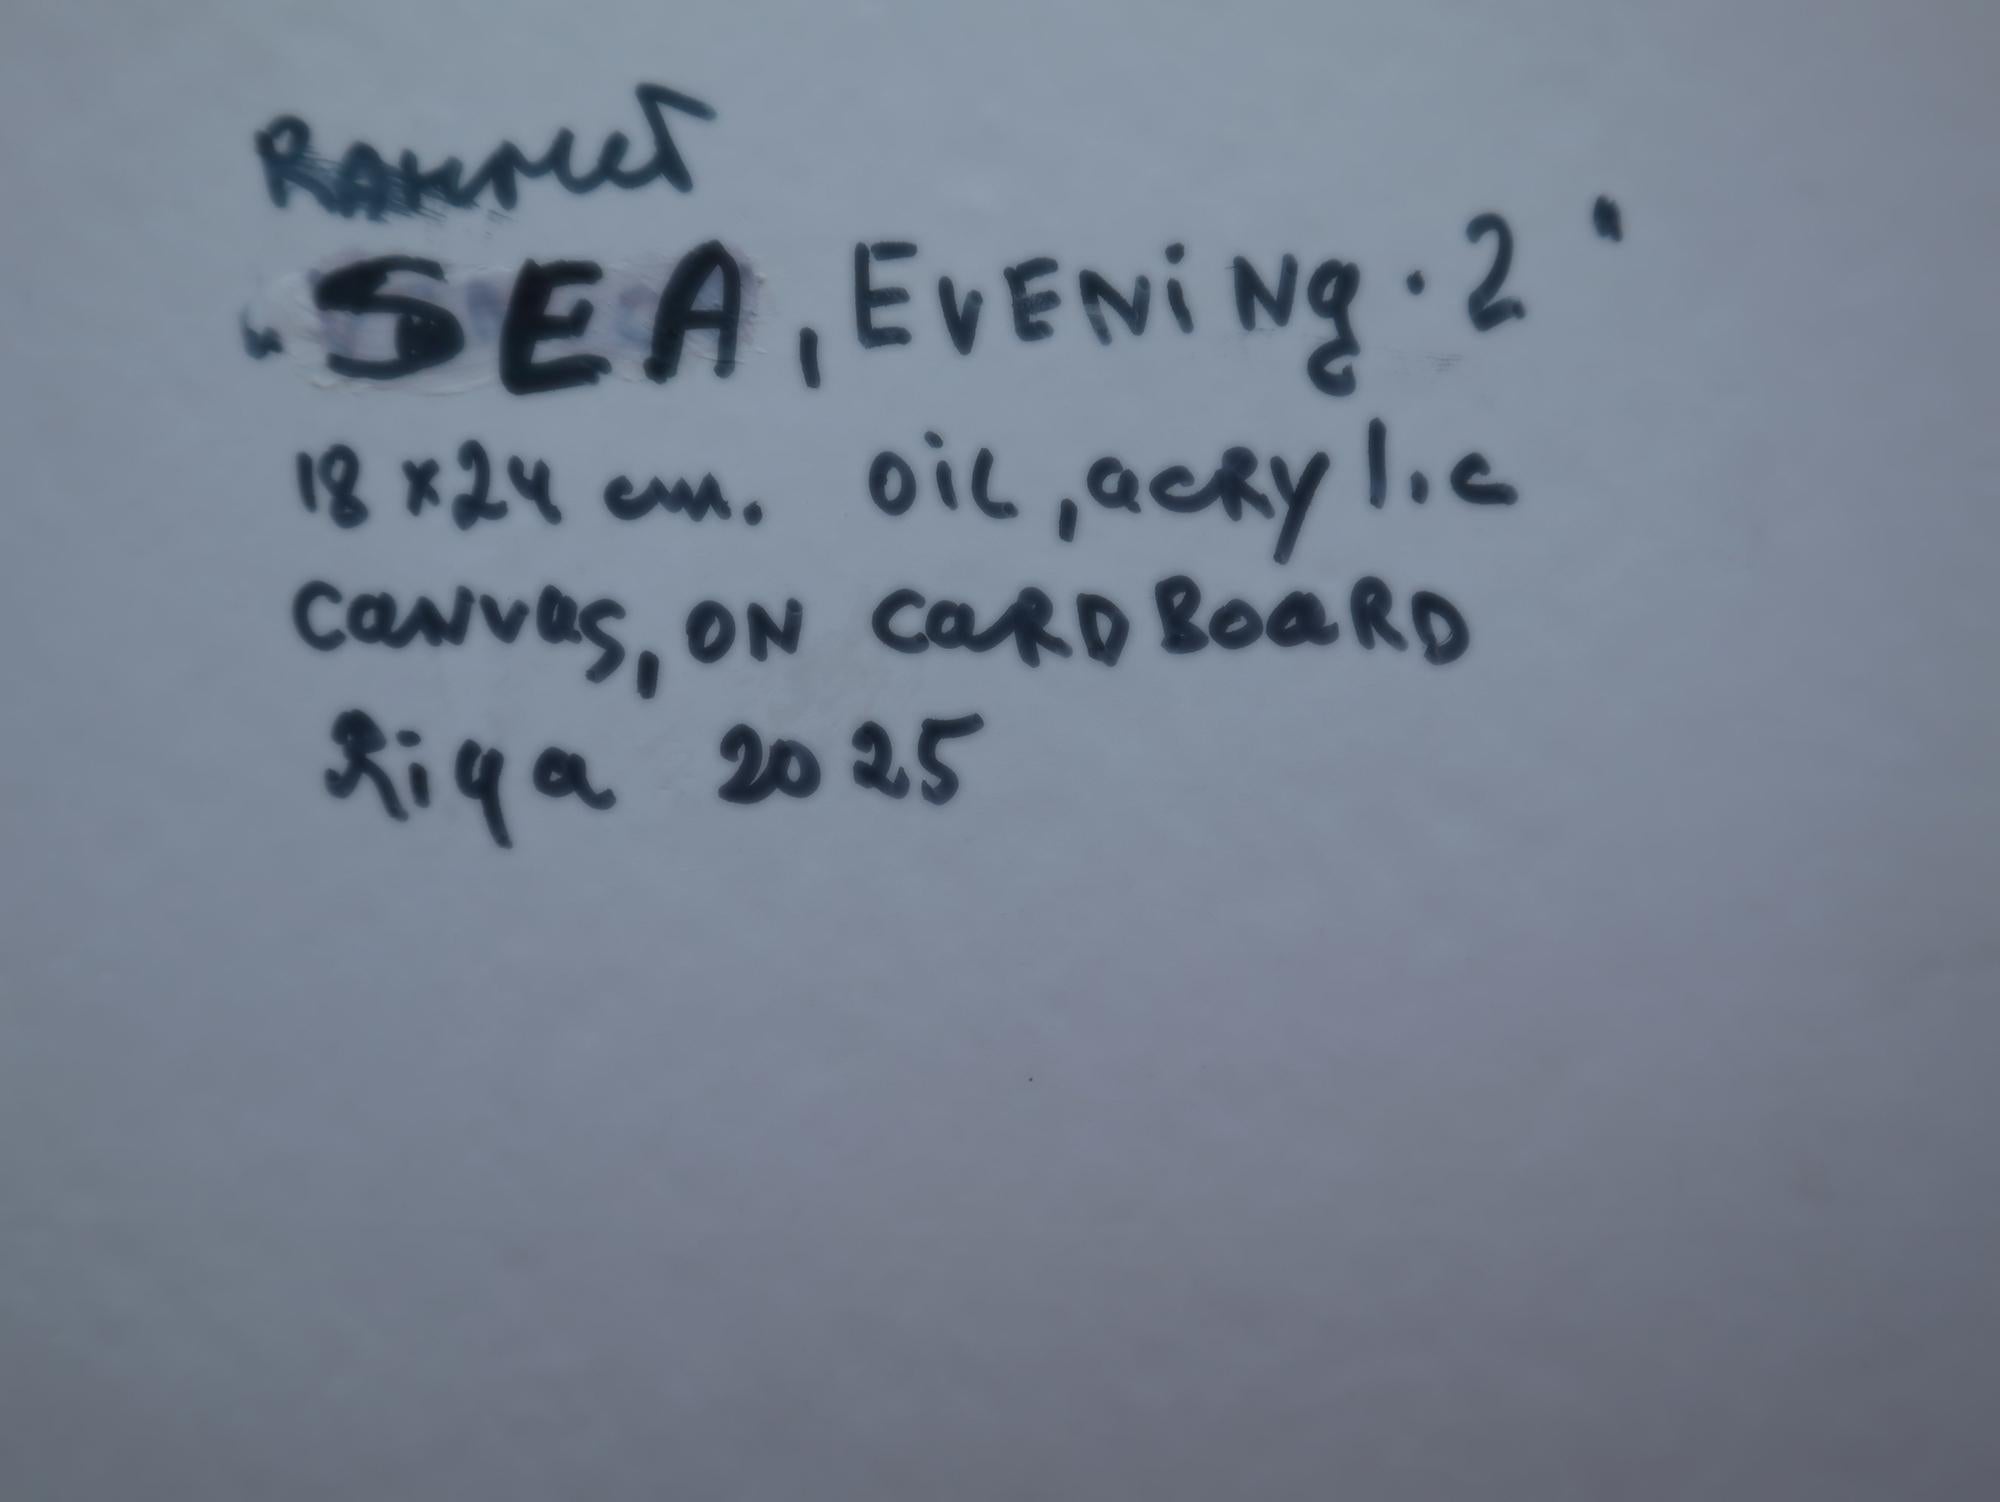 „SEA, EVENiNg. 2"
18 x 24 cm. oil, acRylic
CaNvas, ON CaRDBoaRD
Riga 2025